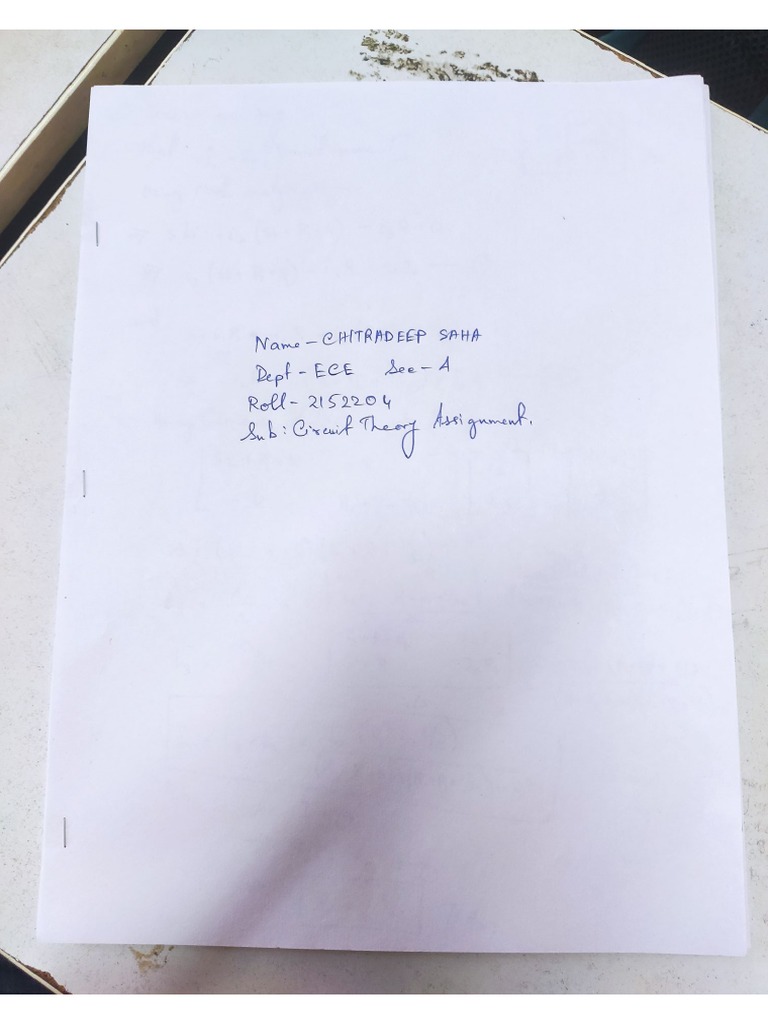 Name - CHITRADEEP SAHA
Dept - ECE Sec - A
Roll - 2152204
Sub : Circuit Theory Assignment.